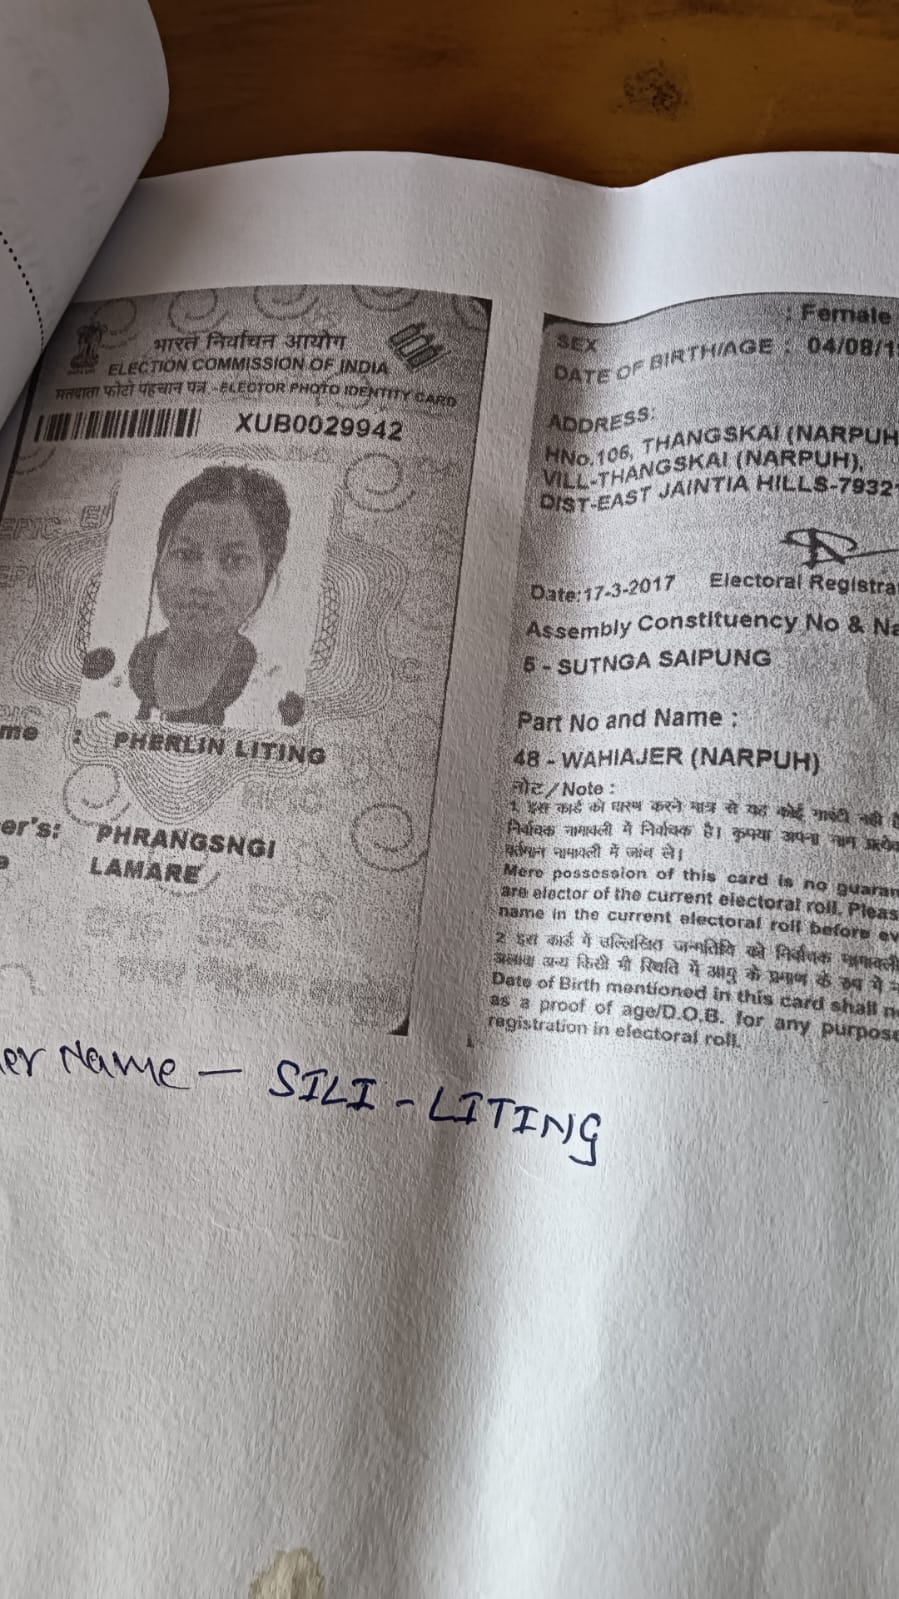 भारत निर्वाचन आयोग
ELECTION COMMISSION OF INDIA
मतदाता फोटो पहचान पत्र - ELECTOR PHOTO IDENTITY CARD
XUB0029942
: PHERLIN LITING
er's: PHRANGSNGI
LAMARE
er Name - SILI - LITING
SEX : Female
DATE OF BIRTH/AGE : 04/08/1
ADDRESS:
HNo.106, THANGSKAI (NARPUH
VILL-THANGSKAI (NARPUH),
DIST-EAST JAINTIA HILLS-7932
Date:17-3-2017 Electoral Registra
Assembly Constituency No & Na
5 - SUTNGA SAIPUNG
Part No and Name :
48 - WAHIAJER (NARPUH)
नोट / Note :
1. इस कार्ड को धारण करने मात्र से यह कोई गारंटी नही
निर्वाचक नामावली में निर्वाचक है। कृपया अपना नाम
वर्तमान नामावली में जांच ले।
Mere possession of this card is no guaran
are elector of the current electoral roll. Pleas
name in the current electoral roll before ev
2 इस कार्ड में उल्लिखित जन्मतिथि को निर्वाचक नामावली
अलावा अन्य किसी भी स्थिति में आयु के प्रमाण के रूप में
Date of Birth mentioned in this card shall n
as a proof of age/D.O.B. for any purpose
registration in electoral roll.